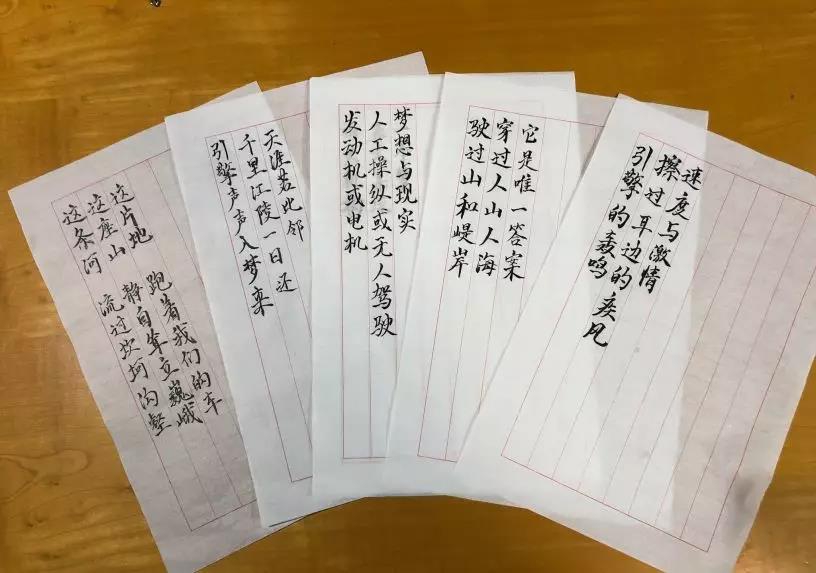 速度与激情
擦过耳边的疾风
引擎的轰鸣
它是唯一答案
穿过人山人海
驶过山和堤岸
梦想与现实
人工操纵或无人驾驶
发动机或电机
天涯若比邻
千里江陵一日还
引擎声声入梦来
这片地 跑着我们的车
这座山 静自耸立巍峨
这条河 流过坎坷沟壑